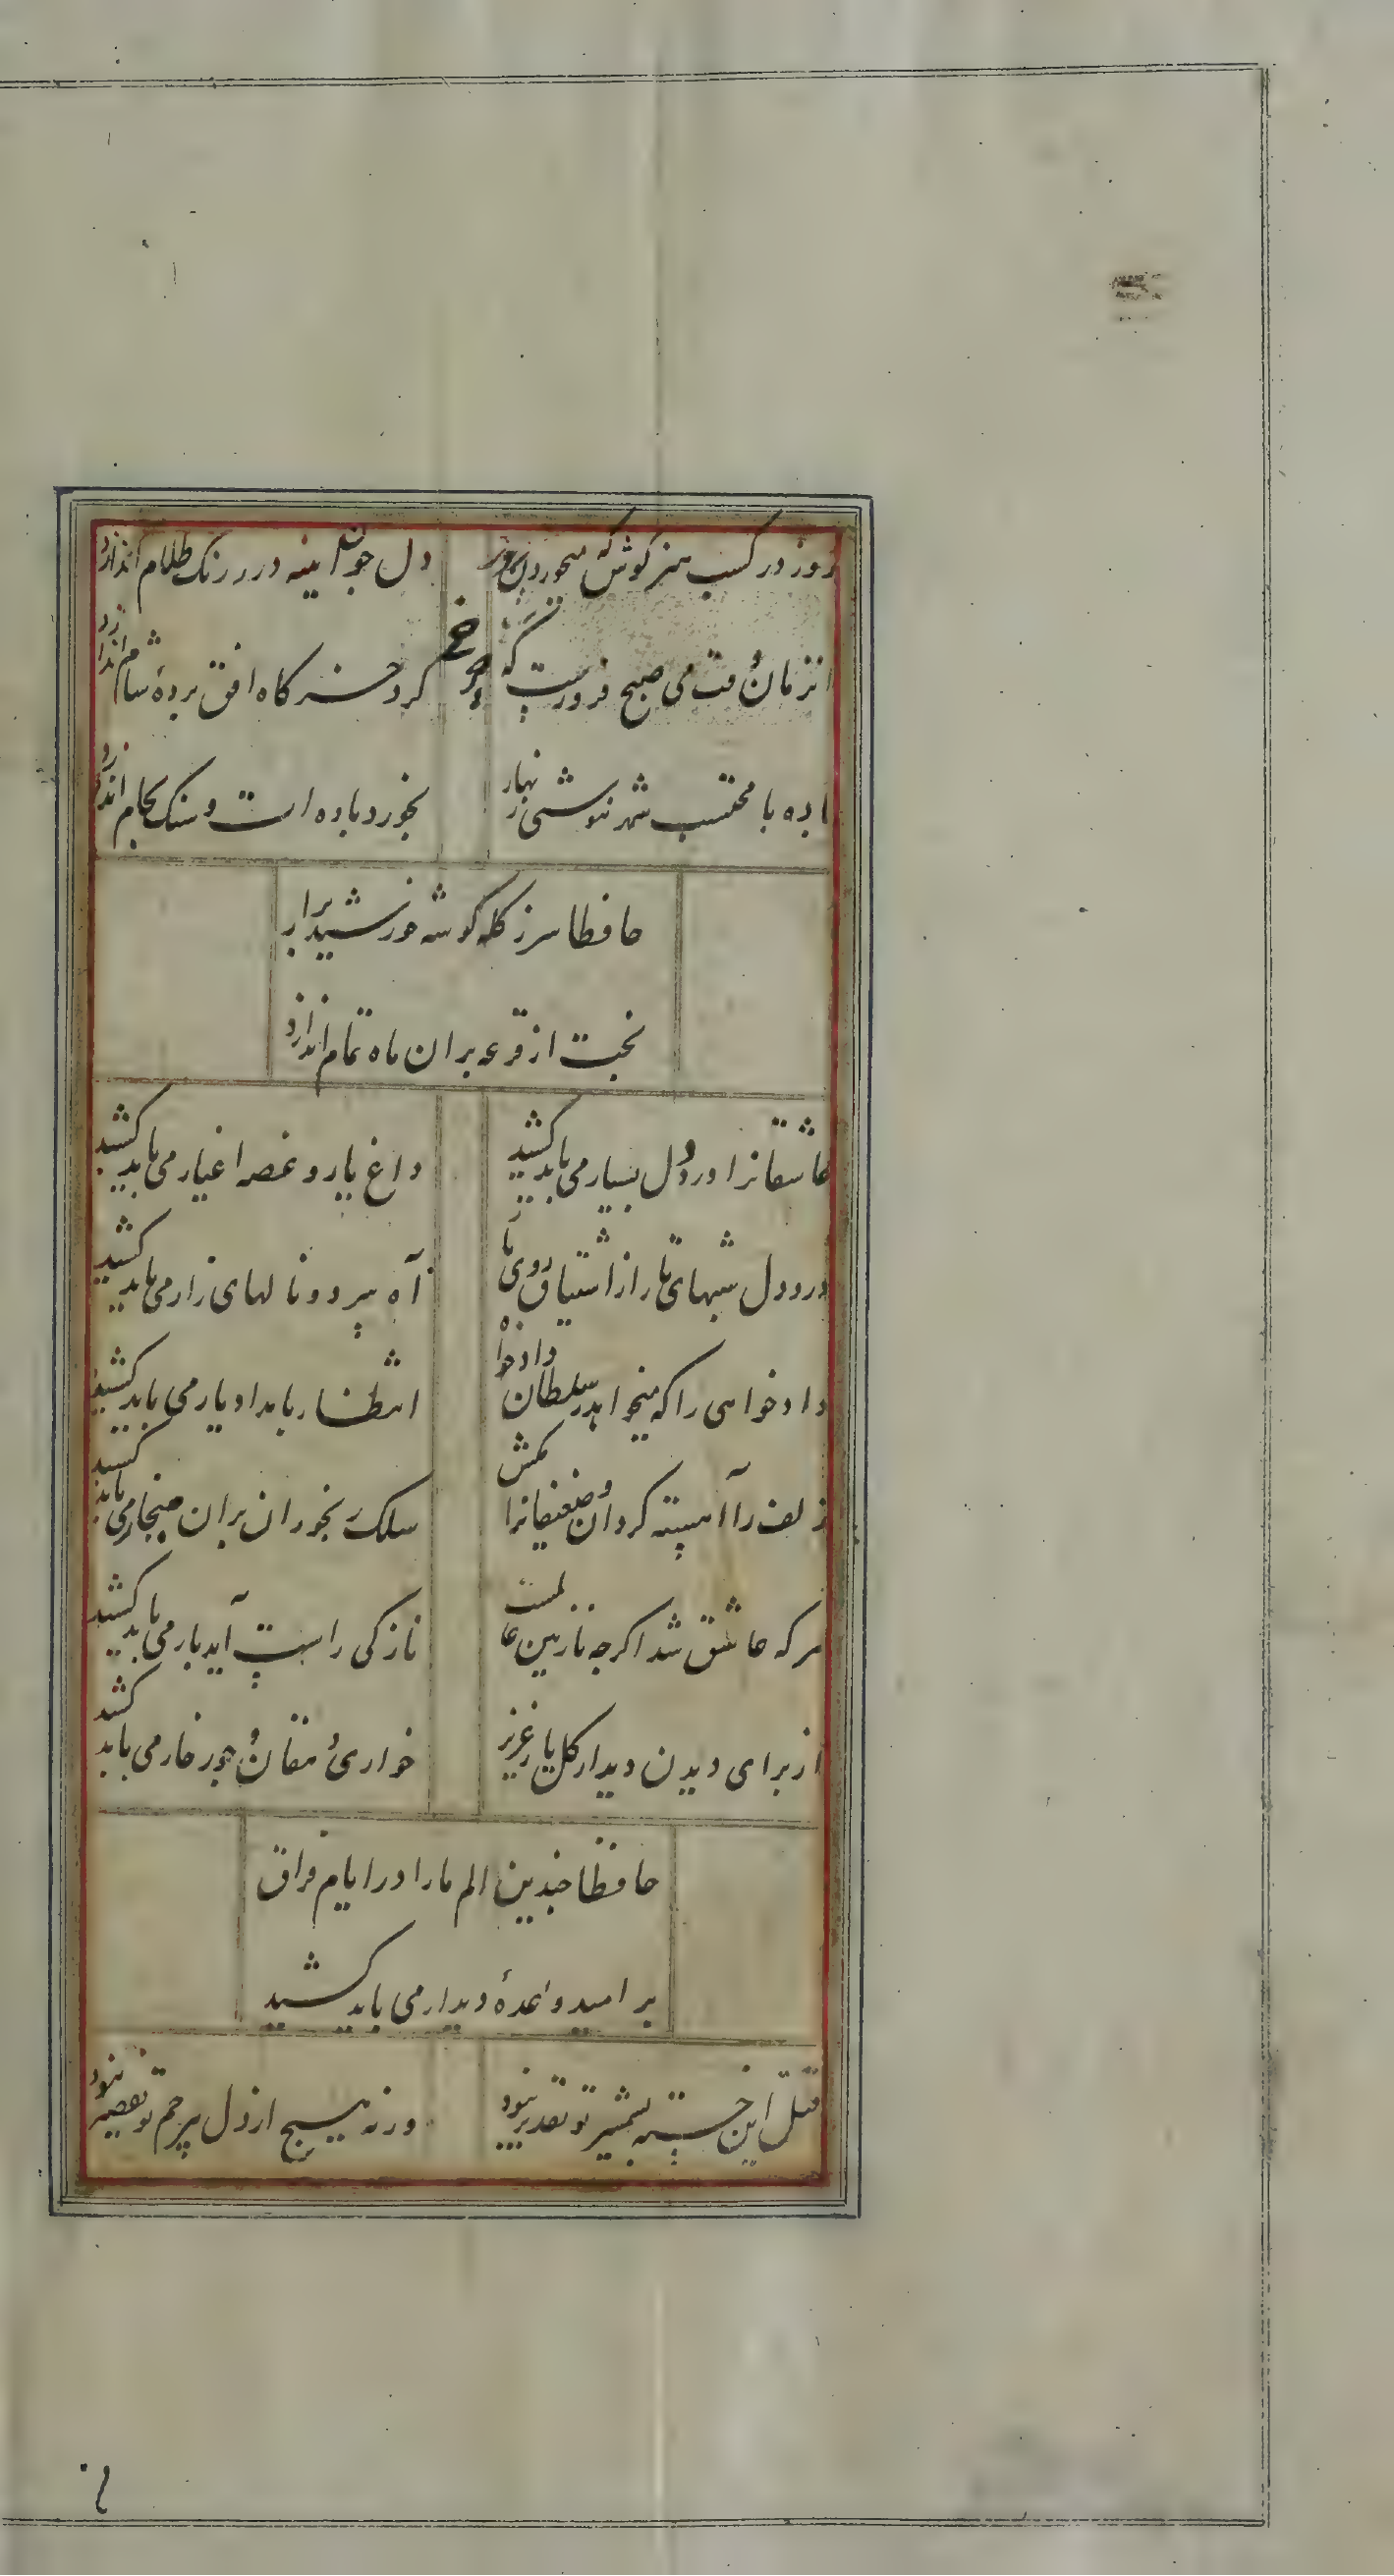 روز در کسب هنر کوش که میخوردن روز
دل چون آینه در زنگ ظلام اندازد
انزمان وقت می صبح فروغست که
گرد خرگاه افق پردهٔ شام اندازد
باده با محتسب شهر ننوشی زنهار
بخورد باده ات و سنک بجام اندازد
حافظا سر ز کله گوشه خورشید برار
بخت ار قرعه بران ماه تمام اندازد
عاشقانرا درد دل بسیار می باید کشید
داغ یار و غصه اغیار می باید کشید
درد دل شبهای تار از اشتیاق روی
آه سرد و نالهای زار می باید کشید
داد خواهی را که میخواهد ز سلطان داد خواه
انتظار بامداد یار می باید کشید
زلف را آهسته گردان و ضعیفانرا مکش
سلک رنجوران بران هنجار می باید کشید
هر که عاشق شد اکرچه نازنین عالمست
نازکی راست آید بار می باید کشید
از برای دیدن دیدار کل یار عزیز
خواریٔ جور خار می باید کشید
حافظا چندین الم ما را در ایام فراق
بر امید وعدهٔ دیدار می باید کشید
قتل این خسته بشمشیر تو تقدیر نبود
ورنه هیچ از دل بیرحم تو تقصیر نبود